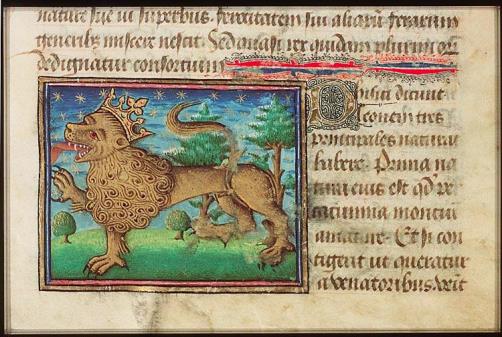 nature sue ut superbus. ferocitatem sui aliarū ferarum
generibꝫ miscere nescit. Sed quasi rex quidam plurimorū
dedignatur consortium
phisici dicunt
leonem tres
principales naturas
habere. Prima na
tura eius est qd̄ per
cacumina montium
amat ire. Et si con
tigerit ut queratur
a venatoribus venit